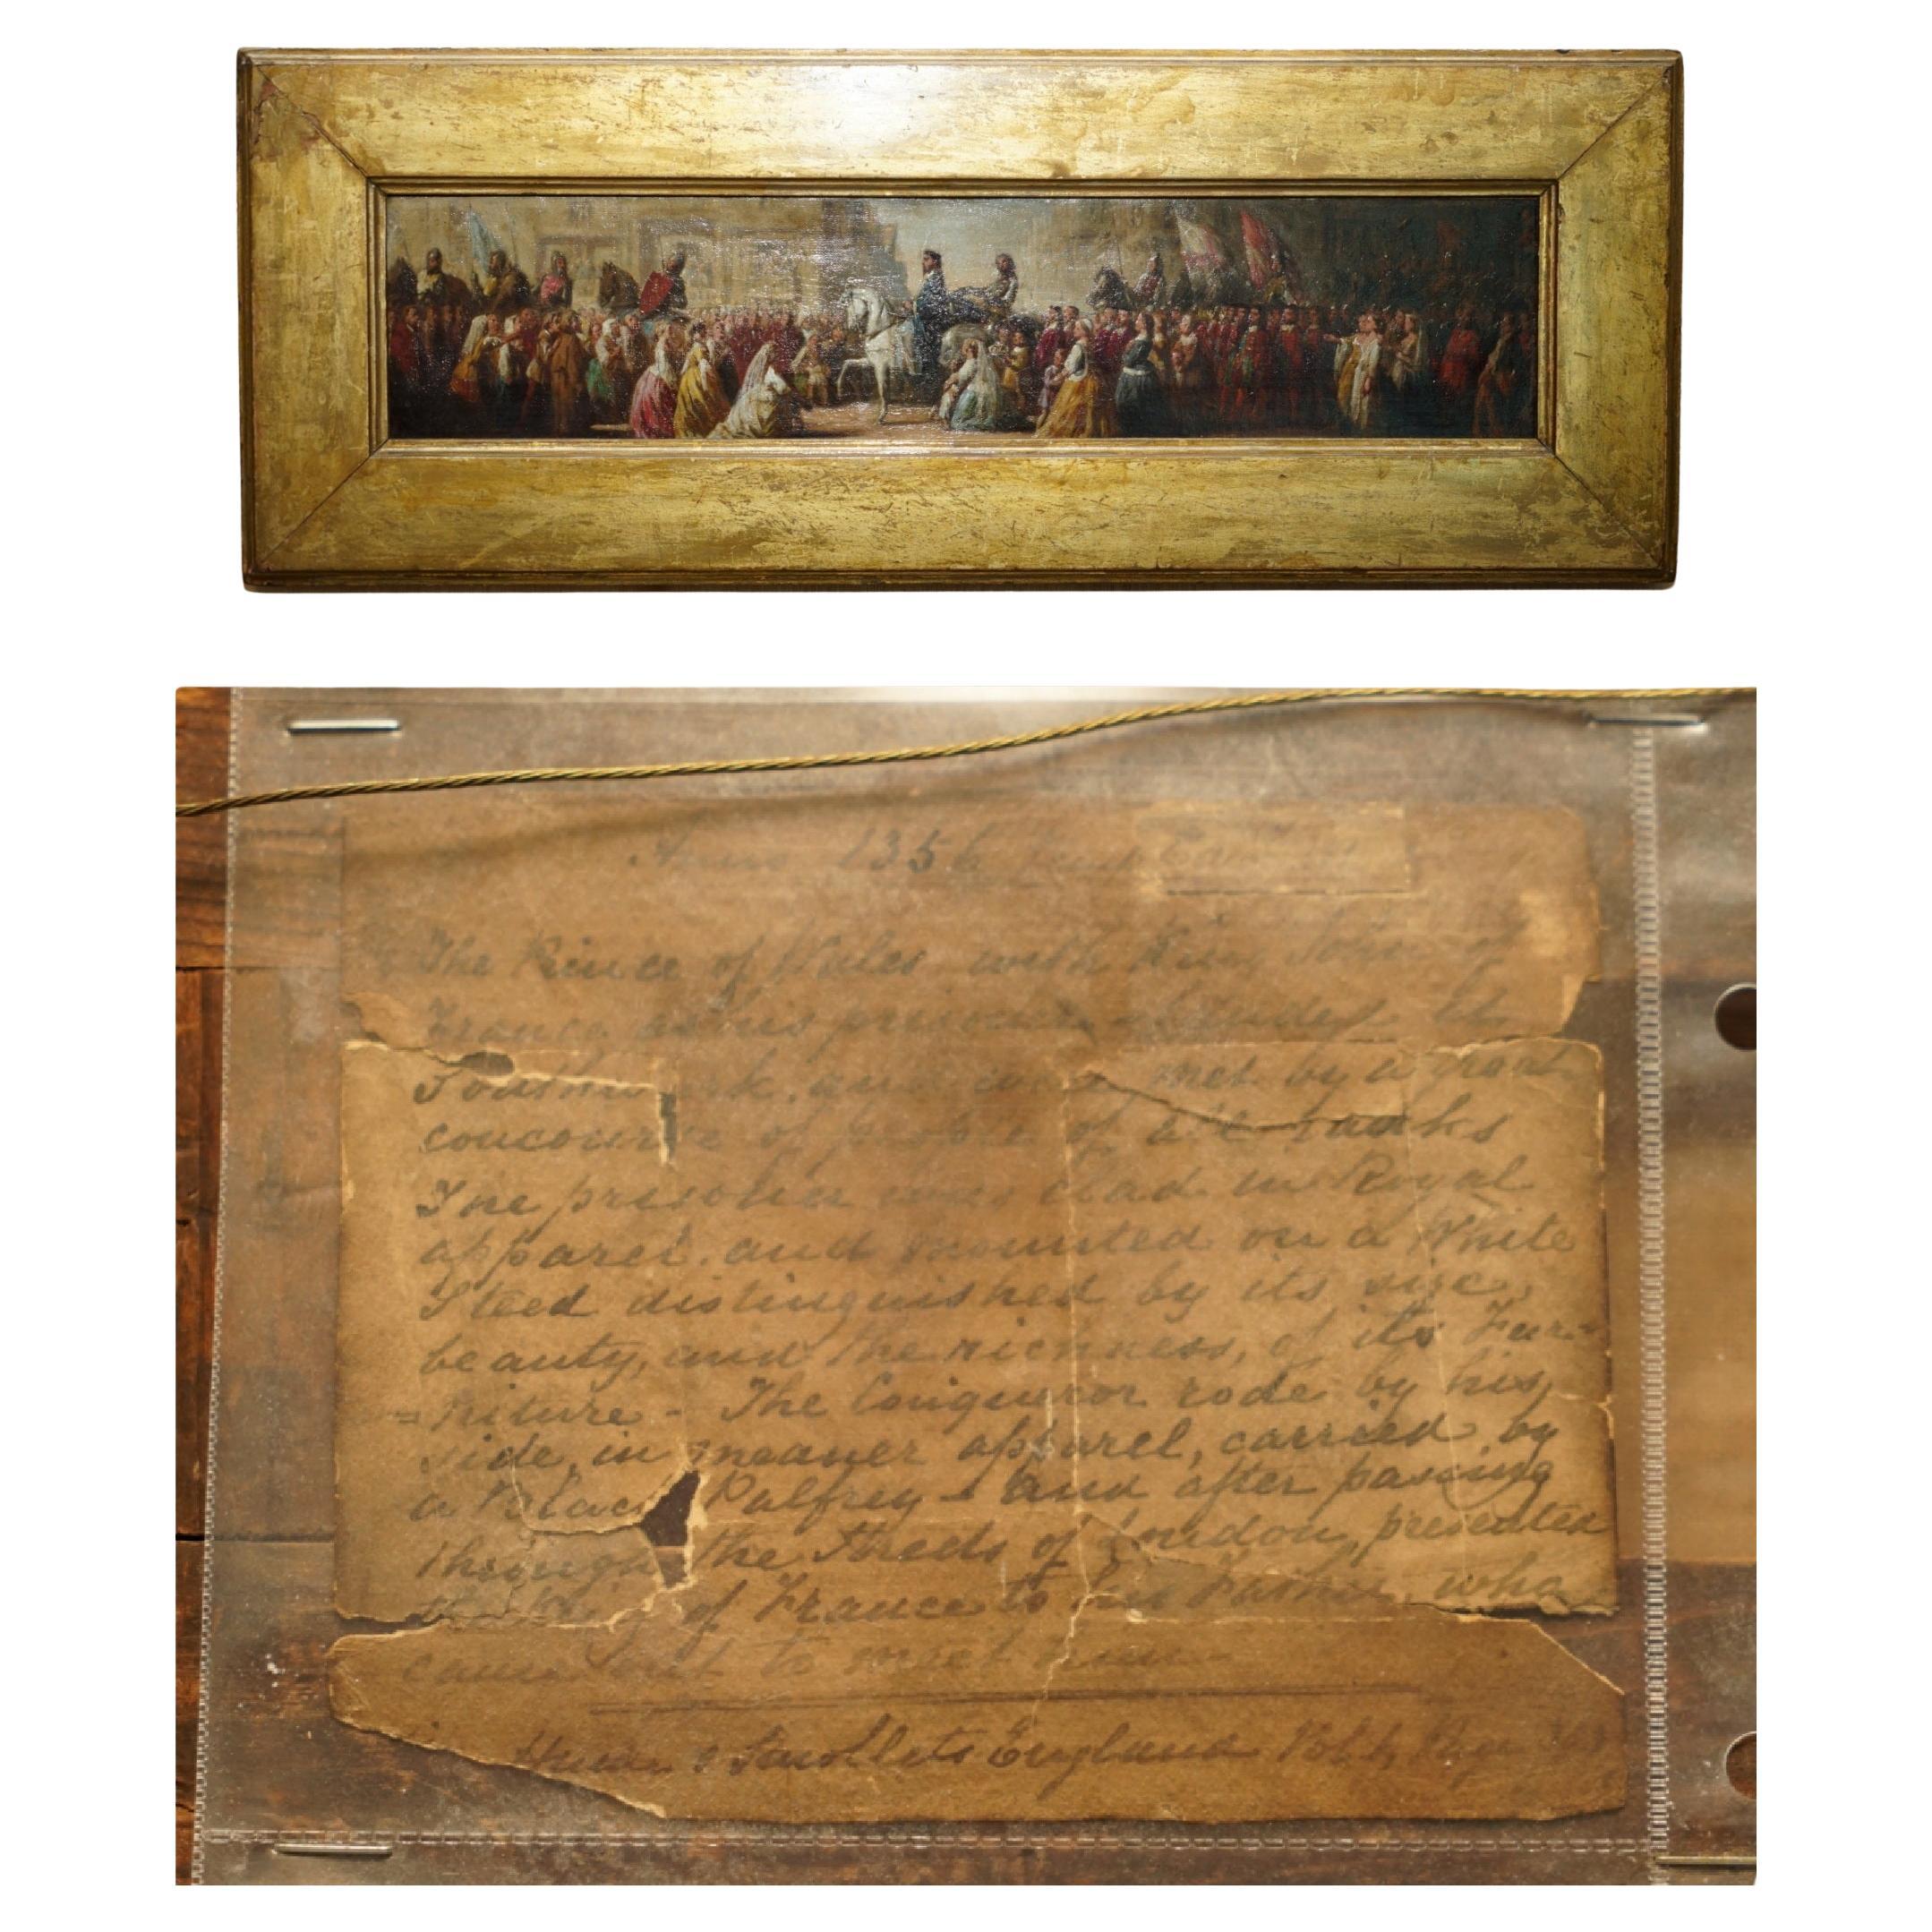 Anno 1356
The Prince of Wales with King John of
France as his prisoner
Southwark, and was met by a great
concourse of people of all ranks
The prisoner was clad in Royal
apparel, and mounted on a White
Steed distinguished by its size,
beauty, and the richness, of its Fur=
=niture - The Conqueror rode by his
side, in meaner apparel, carried by
a Black Palfrey - and after passing
through the Streets of London, presented
the King of France to his Father, who
came out to meet him -
Hume & Smollets England Vol